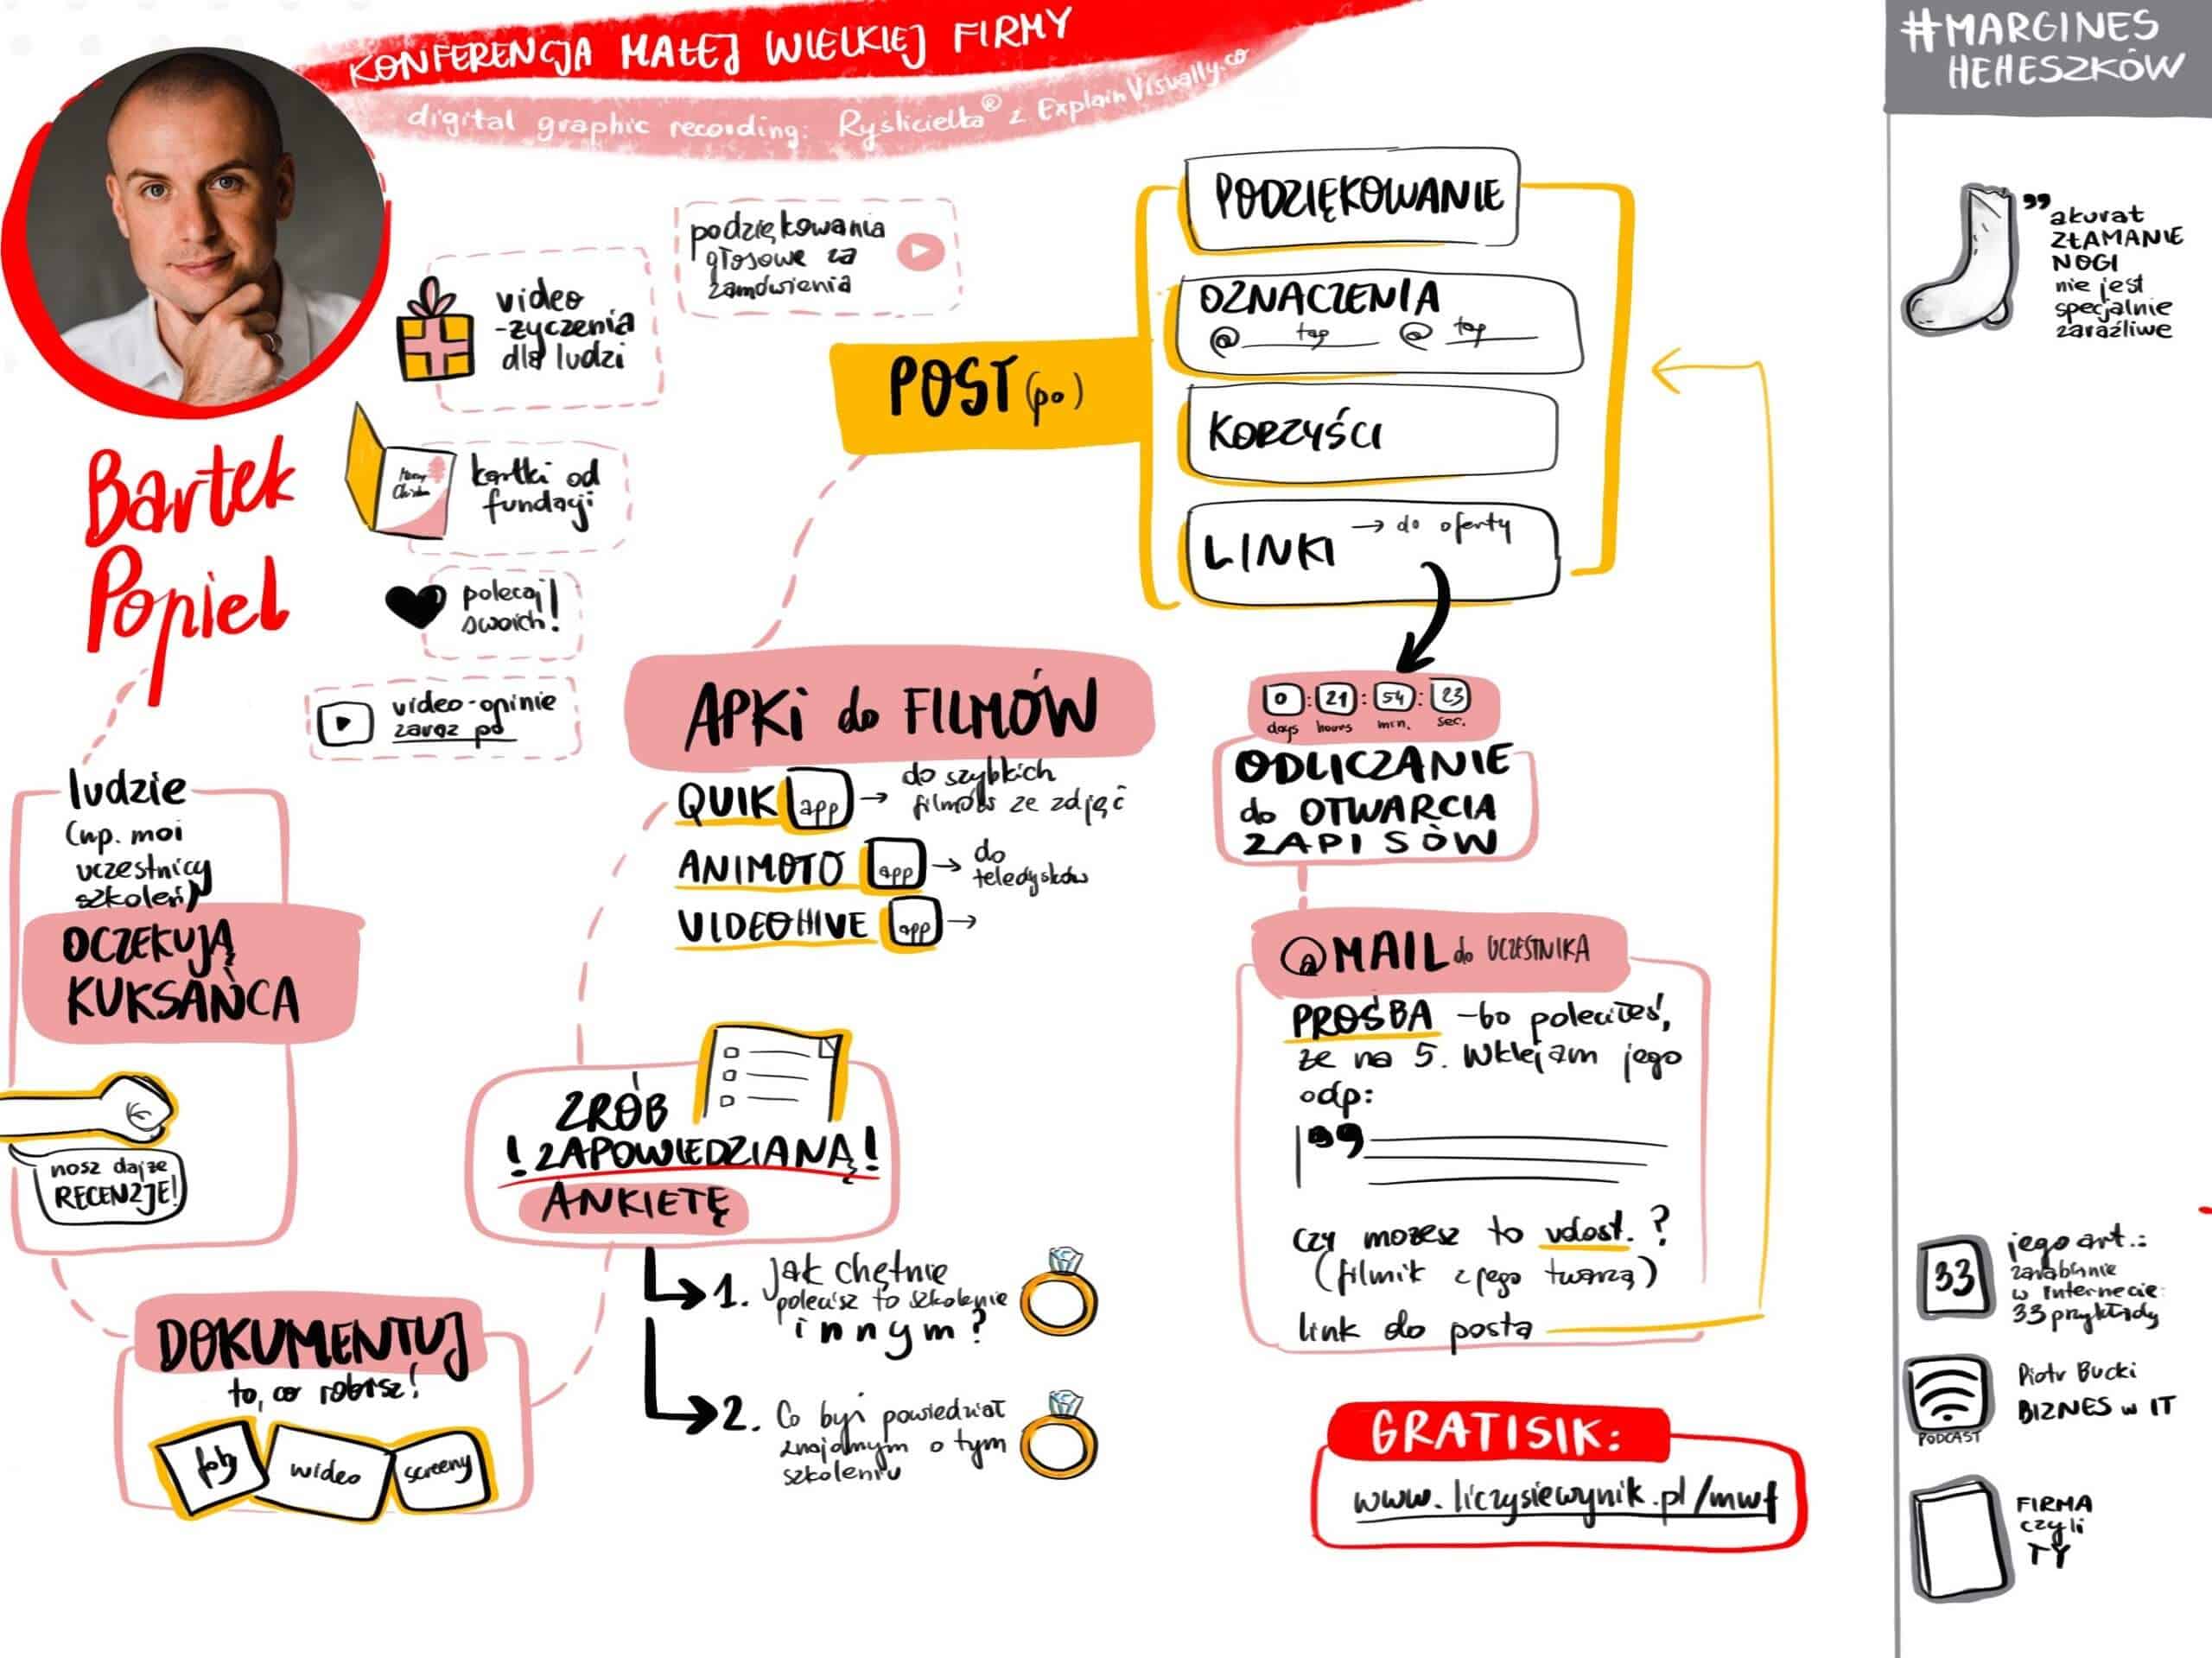 KONFERENCJA MAŁEJ WIELKIEJ FIRMY
digital graphic recording: Ryślicielka® z ExplainVisually.co
Bartek
Popiel
video
-życzenia
dla ludzi
podziękowania
głosowe za
zamówienia
kartki od
fundacji
polecaj
swoich!
video-opinie
zaraz po
ludzie
(np. moi
uczestnicy
szkoleń)
OCZEKUJĄ
KUKSAŃCA
nosz dajże
RECENZJE!
DOKUMENTUJ
to, co robisz!
foty
wideo
screeny
ZRÓB
! ZAPOWIEDZIANĄ !
ANKIETĘ
1. Jak chętnie
polecisz to szkolenie
innym?
2. Co byś powiedział
znajomym o tym
szkoleniu
APKi do FILMÓW
QUIK app → do szybkich
filmów ze zdjęć
ANIMOTO app → do
teledysków
VIDEOHIVE app →
POST (po)
PODZIĘKOWANIE
OZNACZENIA
@ tag @ tag
KORZYŚCI
LINKI → do oferty
0 : 21 : 54 : 23
days hours min. sec.
ODLICZANIE
do OTWARCIA
ZAPISÓW
@MAIL do UCZESTNIKA
PROŚBA - bo poleciłeś,
że na 5. Wklejam jego
odp:
czy możesz to udost. ?
(filmik z jego twarzą)
link do posta
GRATISIK:
www.liczysiewynik.pl/mwf
#MARGINES
HEHESZKÓW
" akurat
ZŁAMANIE
NOGI
nie jest
specjalnie
zaraźliwe
33
jego art.:
zarabianie
w internecie:
33 przykłady
PODCAST
Piotr Bucki
BIZNES w IT
FIRMA
czyli
TY